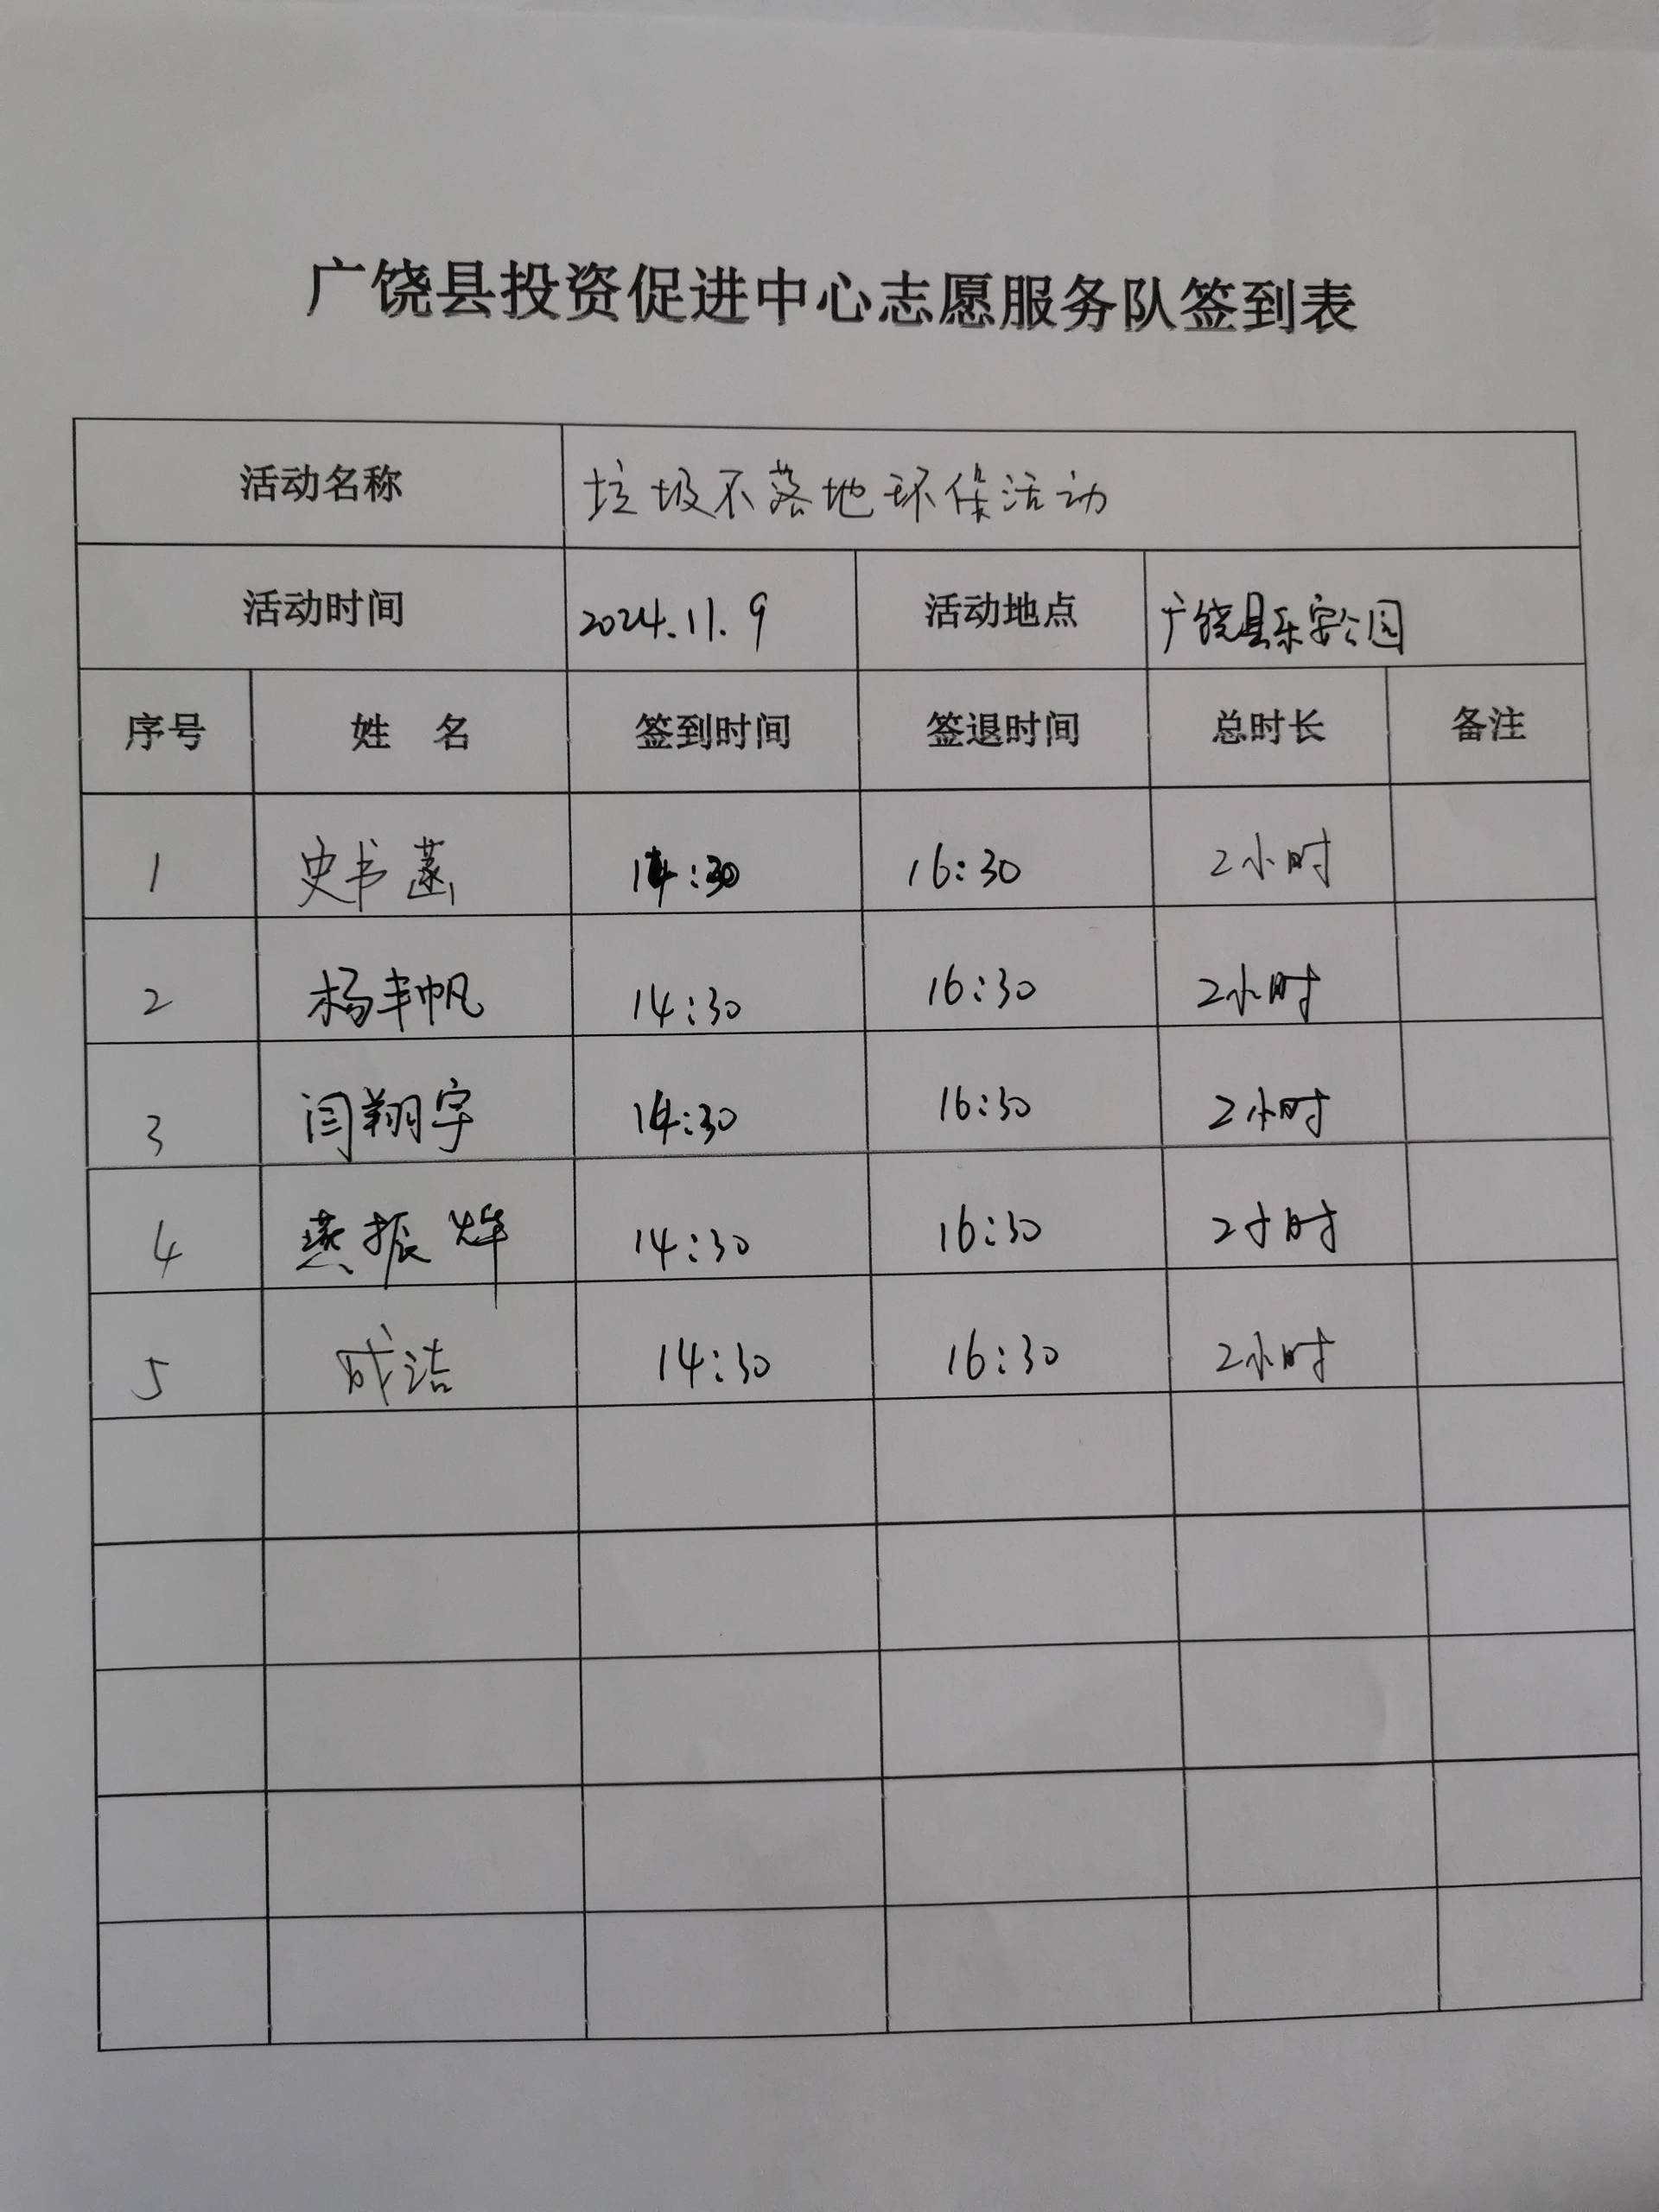 广饶县投资促进中心志愿服务队签到表
活动名称 垃圾不落地环保活动
活动时间 2024.11.9 活动地点 广饶县乐安公园
序号 姓 名 签到时间 签退时间 总时长 备注
1 史书菡 14:30 16:30 2小时
2 杨丰帆 14:30 16:30 2小时
3 闫翔宇 14:30 16:30 2小时
4 燕振烨 14:30 16:30 2小时
5 成洁 14:30 16:30 2小时